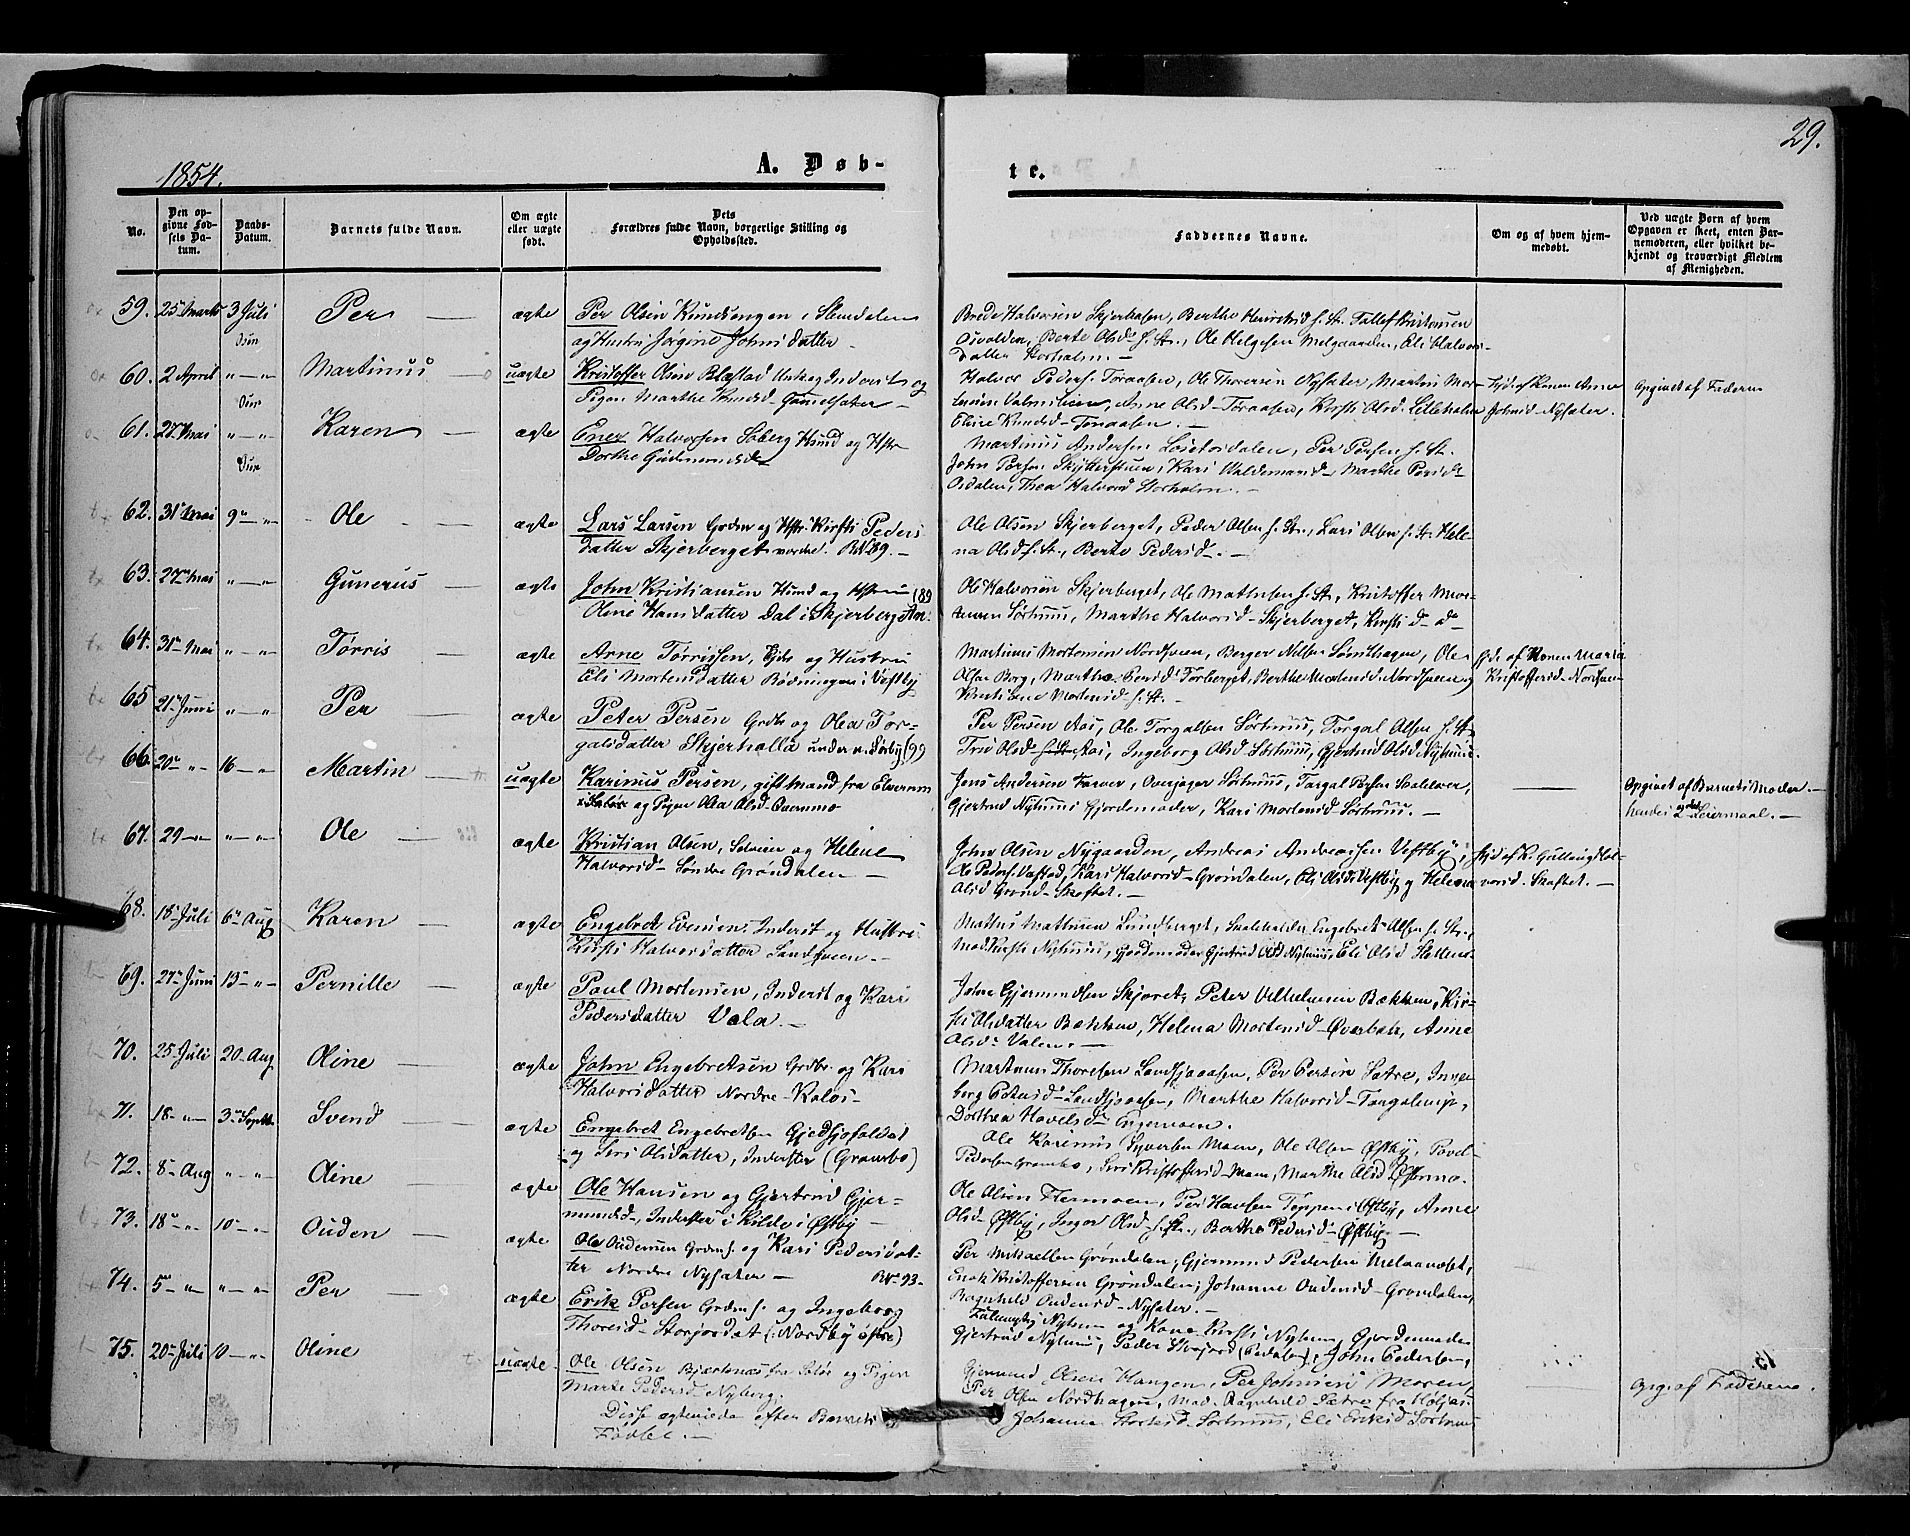 29.
1854.
A. Døb-
te.
No.
Den op-
givne Fød-
sels Da-
tum.
Daabs-
Datum.
Barnets fulde Navn.
Om ægte
eller uægte
født.
Dets
Forældres fulde Navn, borgerlige Stilling og
Opholdssted.
Faddernes Navne.
Om og af hvem hjem-
medøbt.
Ved uægte Børn af hvem
Opgaven er skeet, enten Bar-
nemoderen, eller hvilket be-
kjendt og troværdigt Medlem
af Menigheden.
59. 25 Marts 3 Juli Per — ægte Per Olsen i
og Hustru Jørgine Johnsdatter
Brede Halvorsen Skjerhasen, Berthe
Osvalden, Berte Olsd. f. St., Ole Helgesen Melgaarden, Eli Halvors-
datter Storholm. —
60. 2 April " — " Martinus — uægte Kristoffer Olsen Blæstad og
Pigen Marthe Knudsd. Gammelsæter —
Halvor Peders. Toraasen, Ole Thoresen Nysæter, Martin Mor-
Anne Olsd. Toraasen, Kirsti Olsd. Lilleholm
Eline Knudsd. Toraasen. —
af Konen Anne
Johnsd. Nysæter.
Opgivet af Faderen
61. 27 Mai " — " Karen — ægte Ener Halvorsen Søberg Husmd og Hstr
Dorthe Gudmundsd.
Martinus Andersen Løsetosdalen, Per Persen f. St.
John Persen Skytterstuen, Kari Valdemarsd., Marthe Persd.
Osdalen, Thea Halvorsd Storholm. —
62. 31 Mai 9 " — " Ole — ægte Lars Larsen Grdm og Hstr. Kirsti Peders
datter Skjerberget nordre. No 89. —
Ole Olsen Skjerberget, Peder Olsen f. St., Lars Olsen f. St. Hele-
na Olsd f. St., Berte Pedersd. —
63. 27 Mai " — " Gunerus — ægte John Kristiansen Husmd og Hstru (89
Oline Hansdatter Dal i Skjerberget
Ole Halvorsen Skjerberget, Ole Mathisen f. St., Kristoffer Mor-
tensen Sørhuus, Marthe Halvorsd Skjerberget, Kirsti d — d —
64. 31 Mai " — " Tørris — ægte Arne Tørrissen, og Hustru
Eli Mortensdatter Rødningen i Vestby
Martinus Mortensen Nordsveen, Berger Nilsen Sømshagen, Ole
Olsen Borg, Marthe Førberget, Berthe Mortensd. Nordsveen og
Kristiane Mortensd f. St. —
af Konen Maria
Kristoffersd. Norsveen
65 21 Juni " — " Per — ægte Peter Persen Grdbr og Olea Tor-
galsdatter Skjerhalla under n. Sørby (99
Per Persen Aas, Ole Torgalsen Sørhuus, Torgal Olsen f. St.
Trio Olsd. Aas, Ingeborg Olsd. Sørhuus, Gjertrud Olsd. Nyhuus.
66. 20 " 16 — " Martin — uægte Karinus Persen, gift mand fra Elverum
i Soløer og Pigen Olea Olsd. Ovarnmo
Jens Andersen Farver, Overjæger Sørhuus, Torgal Persen Saalever,
Gjertrud Nyhuus Gjordemoder, Kari Mortensd Sørhuus. —
—
Opgivet af Barnets Moder. —
hendes 2det Leiermaal. —
67. 29 — " " — " Ole — ægte Kristian Olsen, Selveier og Helene
Halvorsd. Søndre Grøndalen —
John Olsen Nygaarden, Andreas Andreassen Vestby,
Ole Peders. Vastad, Kari Halvorsd. Grøndalen, Eli Olsd. Vestby og Helene
Olsd Grønd — Skoftet. —
af K. Gulling Hal-
vorsd. Skaftet. —
68. 18 Juli 6 Aug Karen — ægte Engebret Evensen, Inderst og Hustru
Kirsti Halvorsdatter Sandsveen. —
Mathis Mathisen Lundberget, Engebret Olsen f. St.,
Mad. Kirsti Nyhuus, Gjordemoder Gjertrud Olsd Nyhuus, Eli Olsd
69. 27 Juni 13 — " Pernille — ægte Paul Mortensen, Inderst og Kari
Pedersdatter Vola. —
John Gjermundsen Skjæret, Peter Vilhelmsen Bækken, Kir-
sti Olsdatter Bækken, Helena Mortensd. Øverbæk, Anne
Olsd. Valen. —
70. 25 Juli 20 Aug Oline — ægte John Engebretsen Grdbr. og Kari
Halvorsdatter Nordre Kolos —
Martinus Thoresen Landsjøaasen, Per Persen Sætre, Inge-
borg Persd. Landsjøaasen, Marthe Halvorsd.
Dorthea Havelsd. Engermoen.
71. 18 — " 3 Septb. Svend — ægte Engebret Engebretsen
og Siri Olsdatter, Inderster (Grambo)
Ole Karinus Syversen Moen, Ole Olsen Østby, Povel
Pedersen Grambo, Siri Kristoffersd. Moen, Marthe Olsd Østermo.
72. 8 Aug " — " Oline — ægte Ole Hansen og Gjertrud Gjer-
mundsd., Inderster i Kilde i Østby —
Ole Olsen Hermoen, Per Hansen Toppen i Østby, Anne
Olsd. Østby, Inger Olsd. f. St., Berthe Pedersd. Østby. —
73. 18 " 10 — " Ouden — ægte Ole Oudensen Grdm. S. og Kari Pedersdat-
ter Nordre Nysæter — No 93.
Per Mikaelsen Grøndalen, Gjermund Pedersen Melaanæset,
Enok Kristoffersen Grøndalen, Johanne Oudensd. Grøndalen,
Ragnhild Oudensd. Nysæter. —
74. 5 " " — " Per — ægte Erik Persen Grdm S. og Ingeborg
Thoresd. Storjordet (: Nordby østre)
Nyhuus og Kone Kirsti Nyhuus, Gjordemoder
Gjertrud Nyhuus, Peder Storjord (Pedalen), John Pedersen,
75. 20 Juli 10 — " Oline — uægte — Ole Olsen Bjærknæs fra Soløer og Pigen
Marte Pedersd. Nyberg.
Disse ægteviede efter Barnets
Fødsel. —
Gjermund Olsen Haugen, Per Johnsen Moren,
Per Olsen Nordhagen, Mad. Ragnhild Sætre fra Høljes
Johanna Sørhuus, Eli Eriksd Sørhuus
Opg. af Faderen.